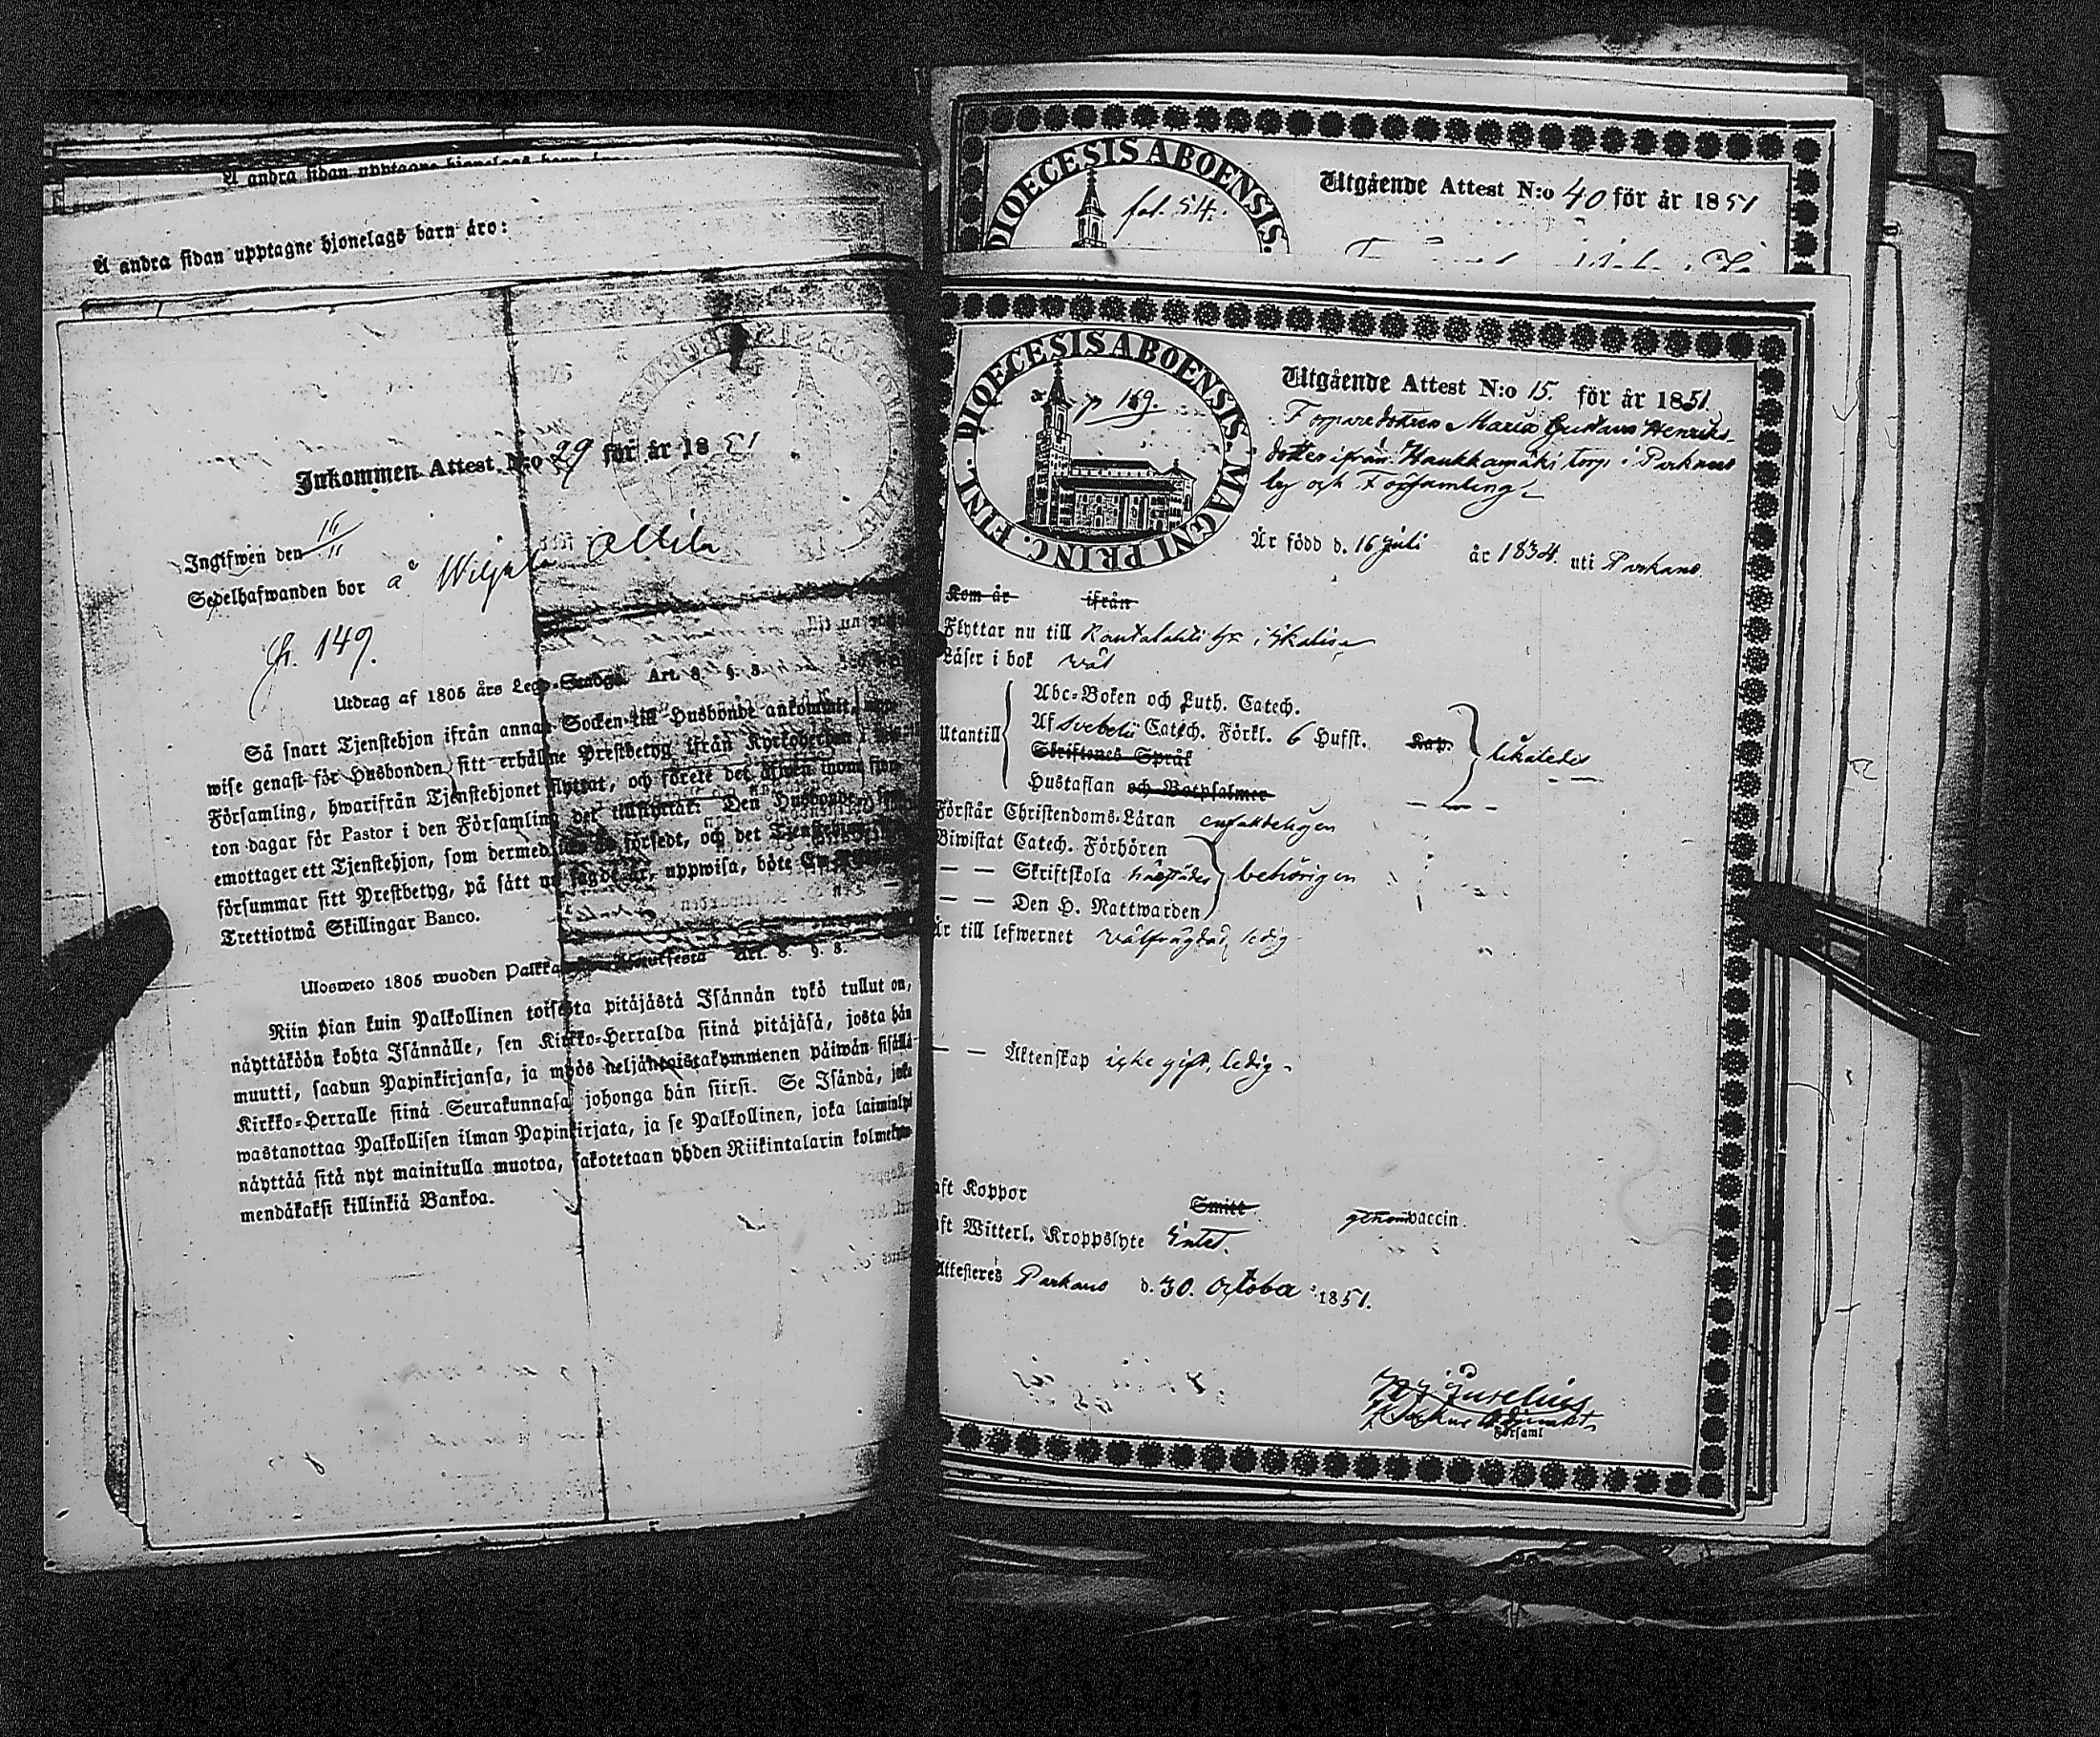 Å andra sidan upptagne hjonelags barn äro:
Å andra sidan upptagne hjonelags barn äro:
Inkommen Attest N:o 29 för år 1851
Ingifwen den 15/11
Sedelhafwanden bor å Wiljala
149.
Utdrag af 1805 års Lego-Stadga. Art. 8. §. 8.
Så snart Tjenstehjon ifrån annan Socken till Husbonde ankommit,
wise genast för Husbonden sitt erhållne Prestbetyg ifrån Kyrkoherden i
Församling, hwarifrån Tjenstehjonet flyttat, och förete det äfwen inom
ton dagar för Pastor i den Församling det tillflyttat. Den Husbonde,
emottager ett Tjenstehjon, som dermed försedt, och det Tjenstehjon
försummar sitt Prestbetyg, på sätt nu sagdt är, uppwisa, böte En
Trettiotwå Skillingar Banco.
Ulosweto 1805 wuoden Palkka Art. 8. §. 8.
Niin pian kuin Palkollinen toisesta pitäjästä Isännän tykö tullut on,
näyttäköön kohta Isännälle, sen Kirkko-Herralda siinä pitäjäsä, josta hän
muutti, saadun Papinkirjansa, ja myös neljäntoistakymmenen päiwän sisällä
Kirkko-Herralle siinä Seurakunnasa johonga hän siirsi. Se Isändä, joka
wastanottaa Palkollisen ilman Papinkirjata, ja se Palkollinen, joka laiminlyö
näyttää sitä nyt mainitulla muotoa, sakotetaan yhden Riikintalarin kolmekym-
mendäkaksi killinkiä Bankoa.
DIOECESIS ABOENSIS.
fol. 54.
Utgående Attest N:o 40 för år 1851
DIOECESIS ABOENSIS. MAGNI PRINC. FINL.
p 169.
Utgående Attest N:o 15. för år 1851.
Torparedottren Maria Gustava Henriks-
dotter ifrån Haukkamäki torp i Parkano
by och Församling
Är född d. 16 Juli år 1834. uti Parkano.
Kom år ifrån
Flyttar nu till i Ikalis
Läser i bok wäl
Utantill
Abc-Boken och Luth. Catech.
Af Svebelii Catech. Förkl. 6 Hufst. Kap.
likaledes
Skriftenes Språk
Hustaflan och Botpsalmer
Förstår Christendoms-Läran enfaldeligen
Biwistat Catech. Förhören
— — Skriftskola behörigen
— — Den H. Nattwarden
Är till lefwernet wälfrägdad, ledig
— — Äktenskap icke gift, ledig
aft Koppor Smitt genom vaccin.
aft Witterl. Kroppslyte Intet.
Attesteres Parkano d. 30. October 1851.
Juselius
Adjunkt
Församl